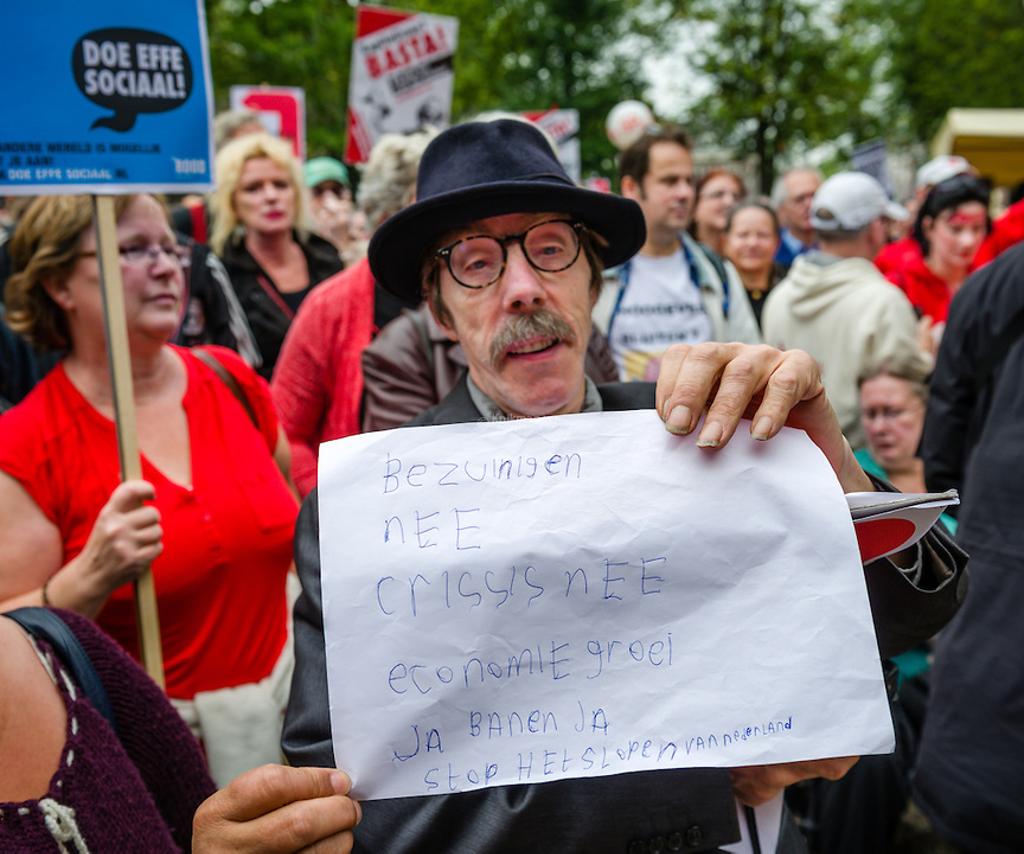 DOE EFFE
SOCIAAL!
ANDERE WERELD IS MOGELIJK
JE AAN!
DOE EFFE SOCIAAL.NL
BASTA!
Bezuinigen
nEE
crissis nEE
economiE groei
JA BANEN JA
stop HEt slopen van nederland